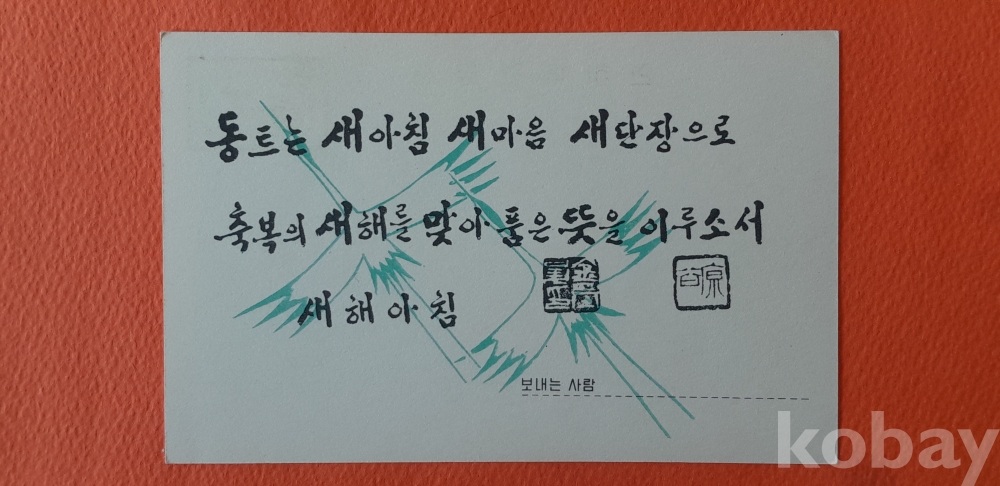 동트는 새아침 새마음 새단장으로
축복의 새해를 맞아 품은 뜻을 이루소서
새해아침
보내는 사람
kobay